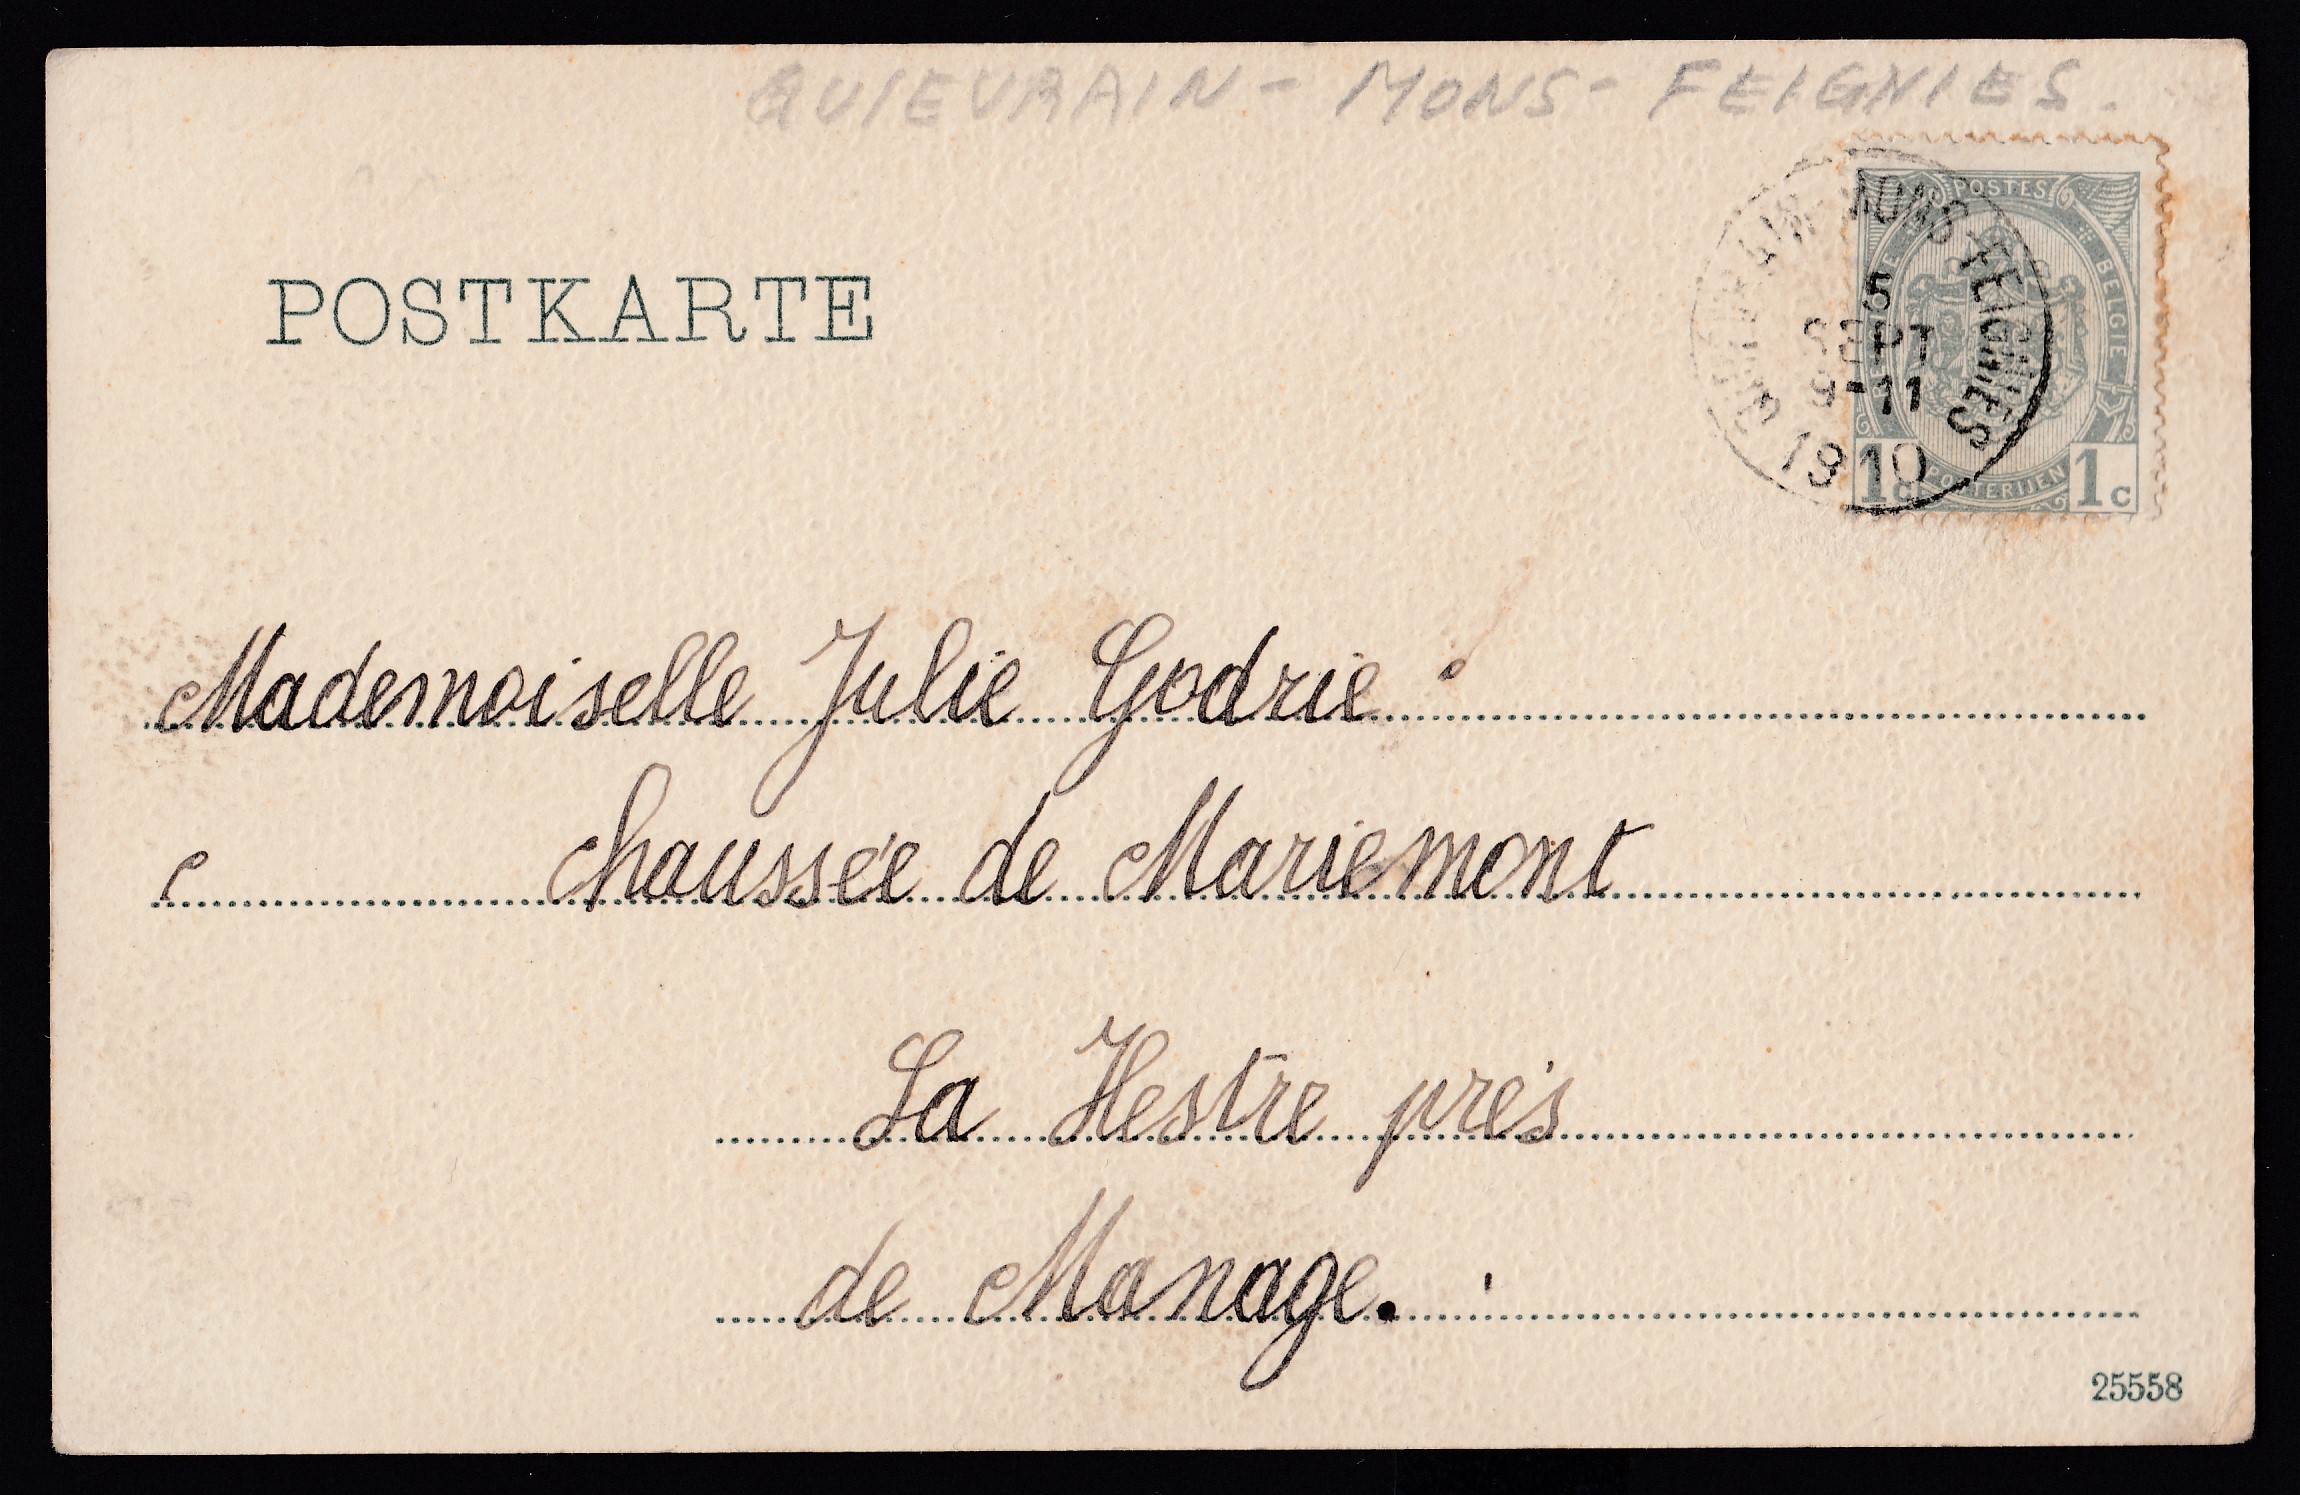 QUIEVRAIN - MONS - FEIGNIES.
POSTES
BELGIE
POSTERIJEN
1c
1c
MONS FEIGNIES
5
SEPT
9-11
1910
POSTKARTE
Mademoiselle Julie Godrie
chaussée de Mariemont
La Hestre près
de Manage.
25558